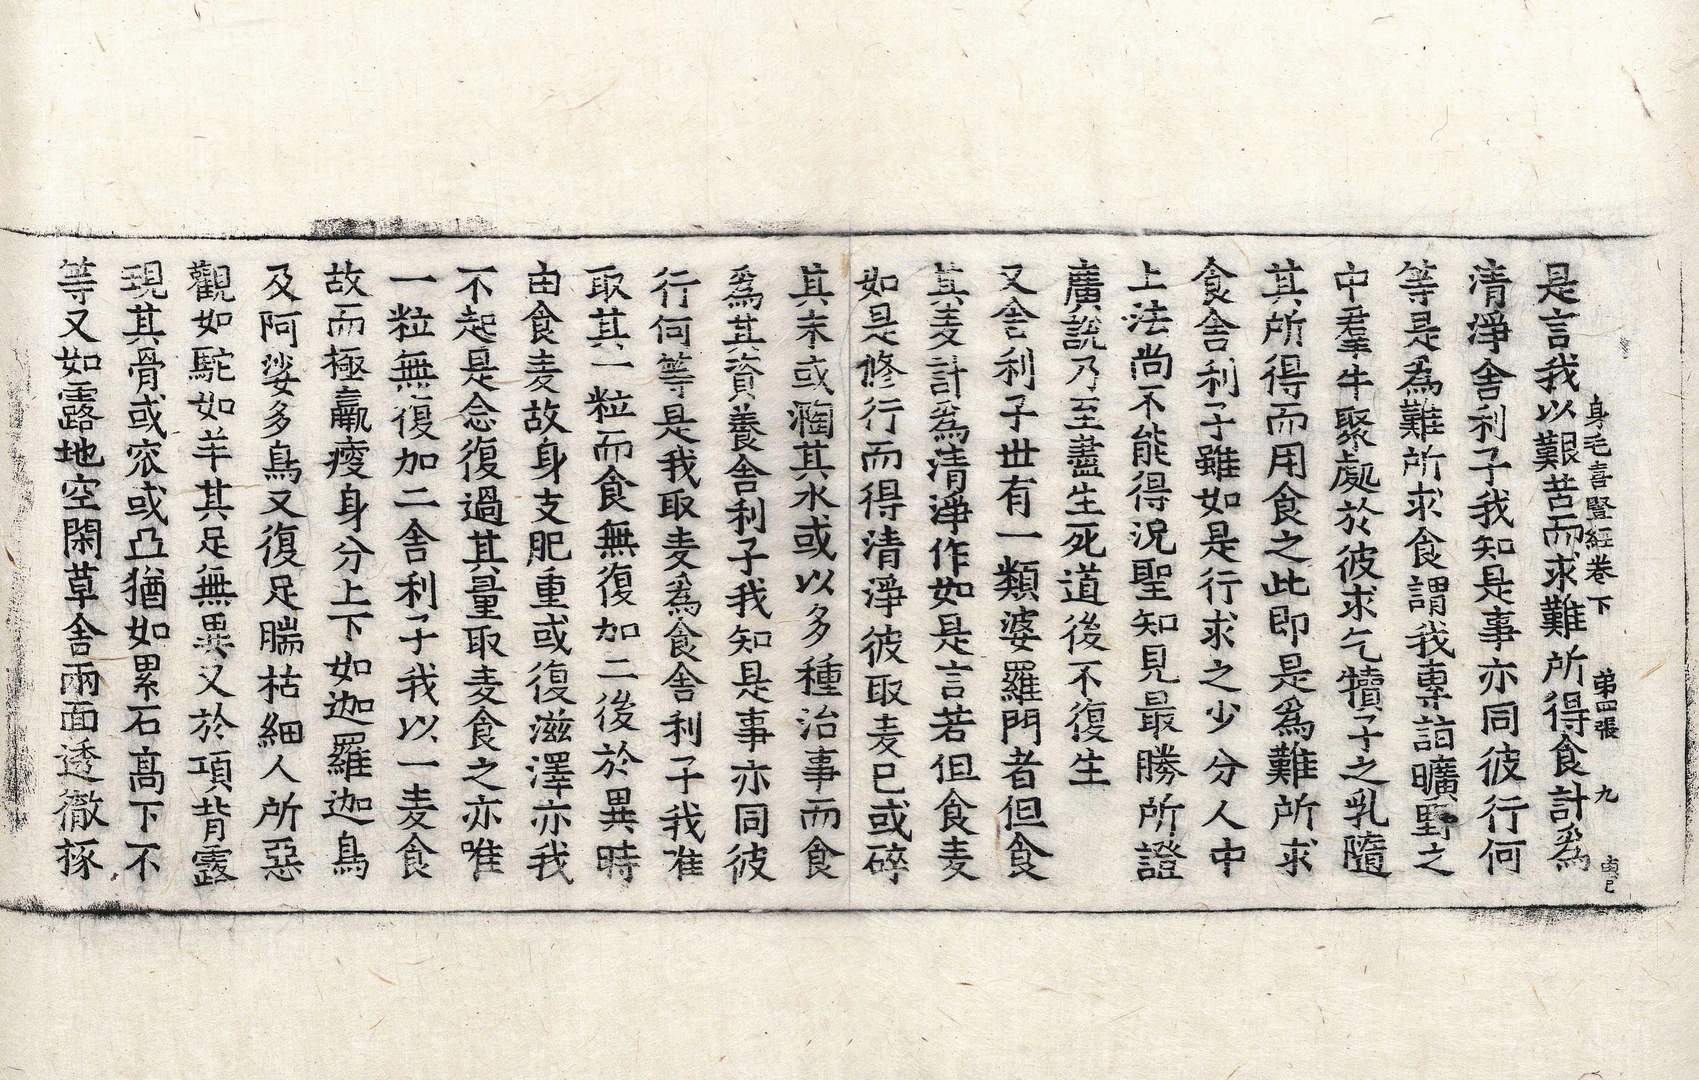 身毛喜豎經卷下 第四張 九
是言我以艱苦而求難所得食計爲
清淨舍利子我知是事亦同彼行何
等是爲難所求食謂我專詣曠野之
中羣牛聚處於彼求乞犢子之乳隨
其所得而用食之此即是爲難所求
食舍利子雖如是行求之少分人中
上法尚不能得況聖知見最勝所證
廣說乃至盡生死道後不復生
又舍利子世有一類婆羅門者但食
其麦計爲清淨作如是言若但食麦
如是修行而得清淨彼取麦已或碎
其末或淘其水或以多種治事而食
爲其資養舍利子我知是事亦同彼
行何等是我取麦爲食舍利子我唯
取其一粒而食無復加二後於異時
由食麦故身支肥重或復滋澤亦我
不起是念復過其量取麦食之亦唯
一粒無復加二舍利子我以一麦食
故而極羸瘦身分上下如迦羅迦鳥
及阿娑多鳥又復足腨枯細人所惡
觀如駝如羊其足無異又於項背露
現其骨或窊或凸猶如累石高下不
等又如露地空閑草舍兩面透徹椽